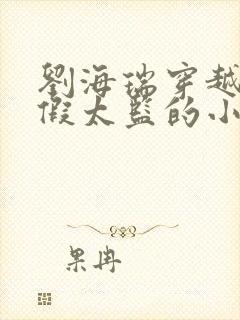 劉海瑞穿越
假太監的小
果冉